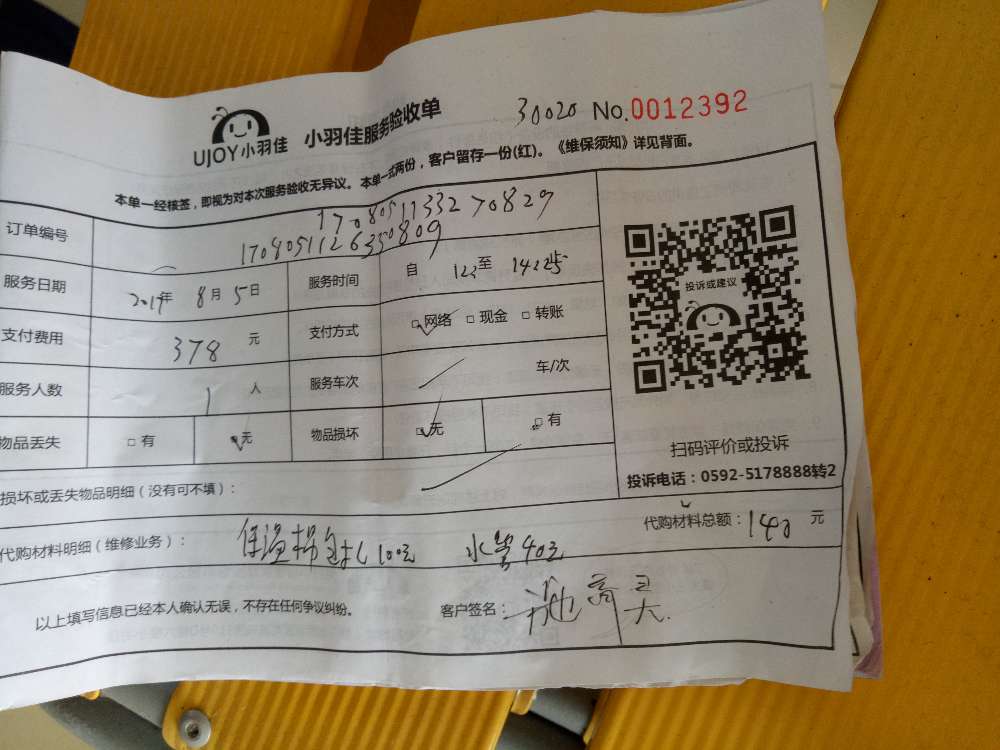 UJOY小羽佳 小羽佳服务验收单 30020 No.0012392
本单一经核签，即视为对本次服务验收无异议。本单一式两份，客户留存一份(红)。《维保须知》详见背面。
订单编号 170805113327 0829
服务日期 年 8月5日 服务时间 自 至
支付费用 378 元 支付方式 □网络 □现金 □转账
服务人数 1 人 服务车次 车/次
物品丢失 □有 □无 物品损坏 □无 □有
投诉或建议
扫码评价或投诉
投诉电话：0592-5178888转2
损坏或丢失物品明细（没有可不填）：
代购材料明细（维修业务）： 100元 水管40元 代购材料总额：140元
以上填写信息已经本人确认无误，不存在任何争议纠纷。 客户签名：